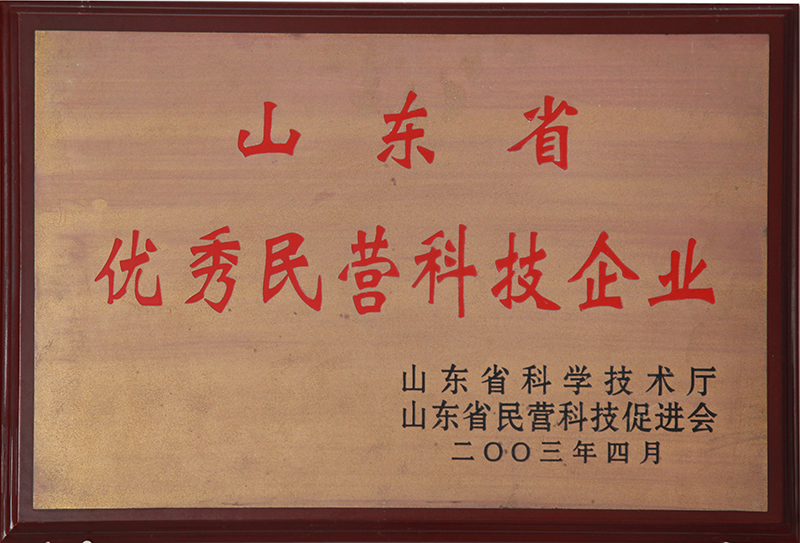 山东省
优秀民营科技企业
山东省科学技术厅
山东省民营科技促进会
二〇〇三年四月